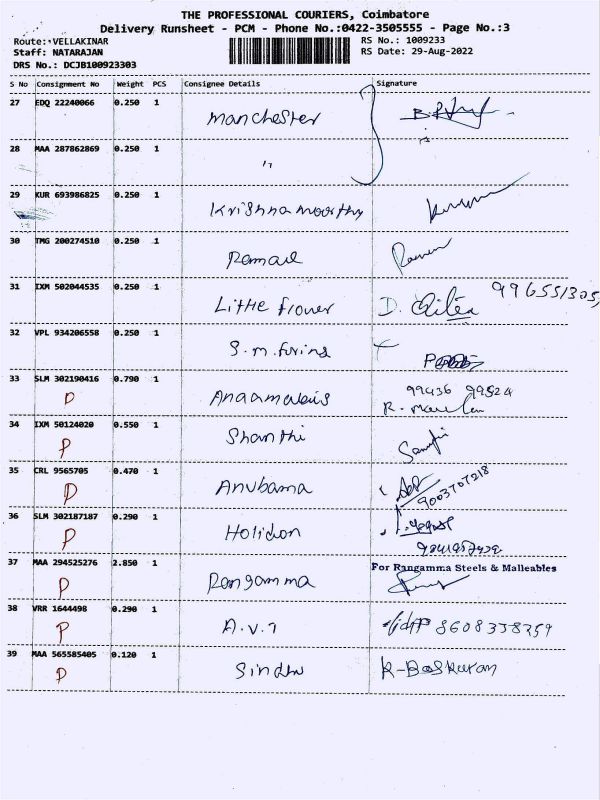 THE PROFESSIONAL COURIERS, Coimbatore
Delivery Runsheet - PCM - Phone No.:0422-3505555 - Page No.:3
Route: VELLAKINAR
Staff: NATARAJAN
DRS No.: DCJB100923303
RS No.: 1009233
RS Date: 29-Aug-2022
S No Consignment No Weight PCS Consignee Details Signature
27 EDQ 22240066 0.250 1 Manchester
28 MAA 287862869 0.250 1 "
29 KUR 693986825 0.250 1 Krishnamoorthy
30 TMG 200274510 0.250 1
31 IXM 502044535 0.250 1 Little flower D. 996551305
32 VPL 934206558 0.250 1 S.m.
33 SLM 302190416 0.790 1 99436 99524
P R.
34 IXM 50124020 0.550 1 Shanthi
P
35 CRL 9565705 0.470 1 Anubama
P 9003707218
36 SLM 302187187 0.290 1
P
37 MAA 294525276 2.850 1 For Rangamma Steels & Malleables
P Rangamma
38 VRR 1644498 0.290 1
P A.V.T 8608338359
39 MAA 565585405 0.120 1
P Sindhu R-Baskaran